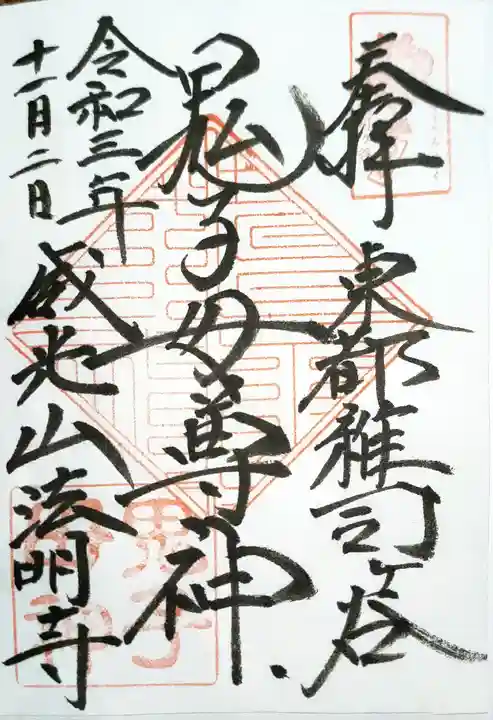 奉拝
東都雑司ヶ谷
鬼子母尊神
令和三年
十一月二日
威光山法明寺